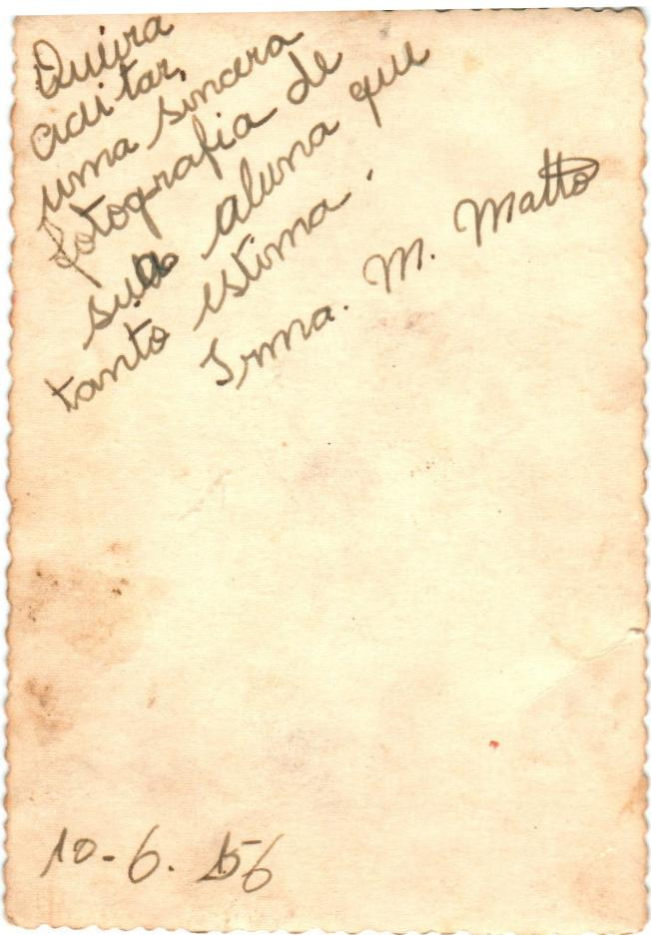 Queira
aceitar,
uma sincera
fotografia de
sua aluna que
tanto estima.
Irma. M. Matto
10-6. 56